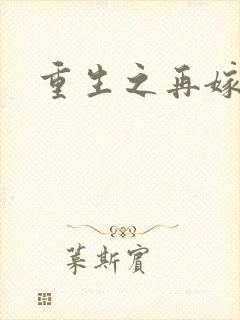 重生之再嫁
莱斯賓